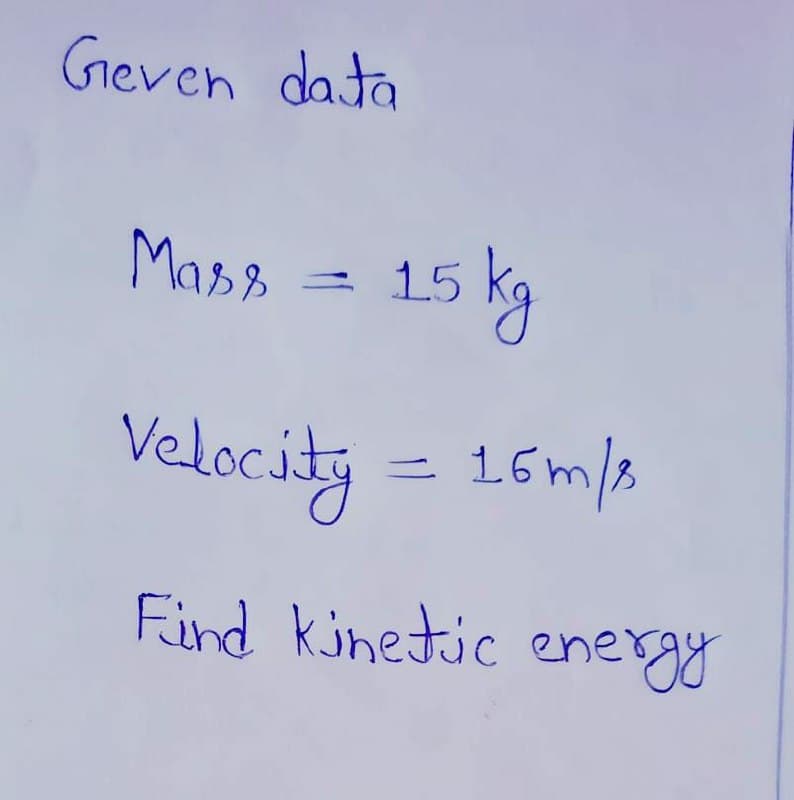 Geven data
Mass = 15 kg
Velocity = 16 m/s
Find kinetic energy